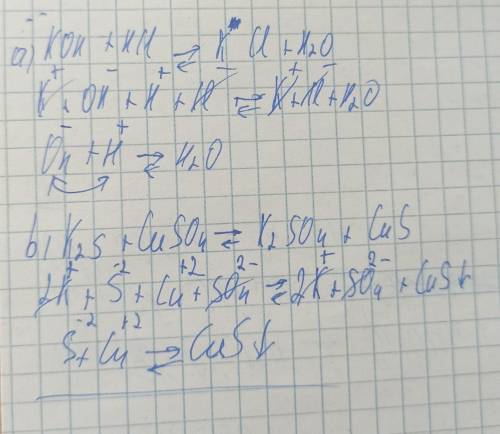 a) KOH + HCl ⇄ K Cl + H₂O
K⁺ + OH⁻ + H⁺ + Cl⁻ ⇄ K⁺ + Cl⁻ + H₂O
OH⁻ + H⁺ ⇄ H₂O
b) K₂S + CuSO₄ ⇄ K₂SO₄ + CuS
2K⁺ + S⁻² + Cu⁺² + SO₄²⁻ ⇄ 2K⁺ + SO₄²⁻ + CuS↓
S⁻² + Cu⁺² ⇄ CuS↓